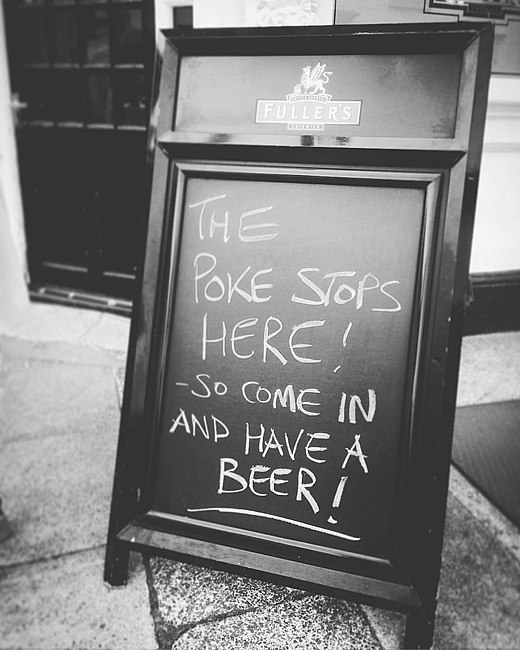 FULLER'S
CHISWICK
THE
POKE STOPS
HERE!
-SO COME IN
AND HAVE A
BEER!